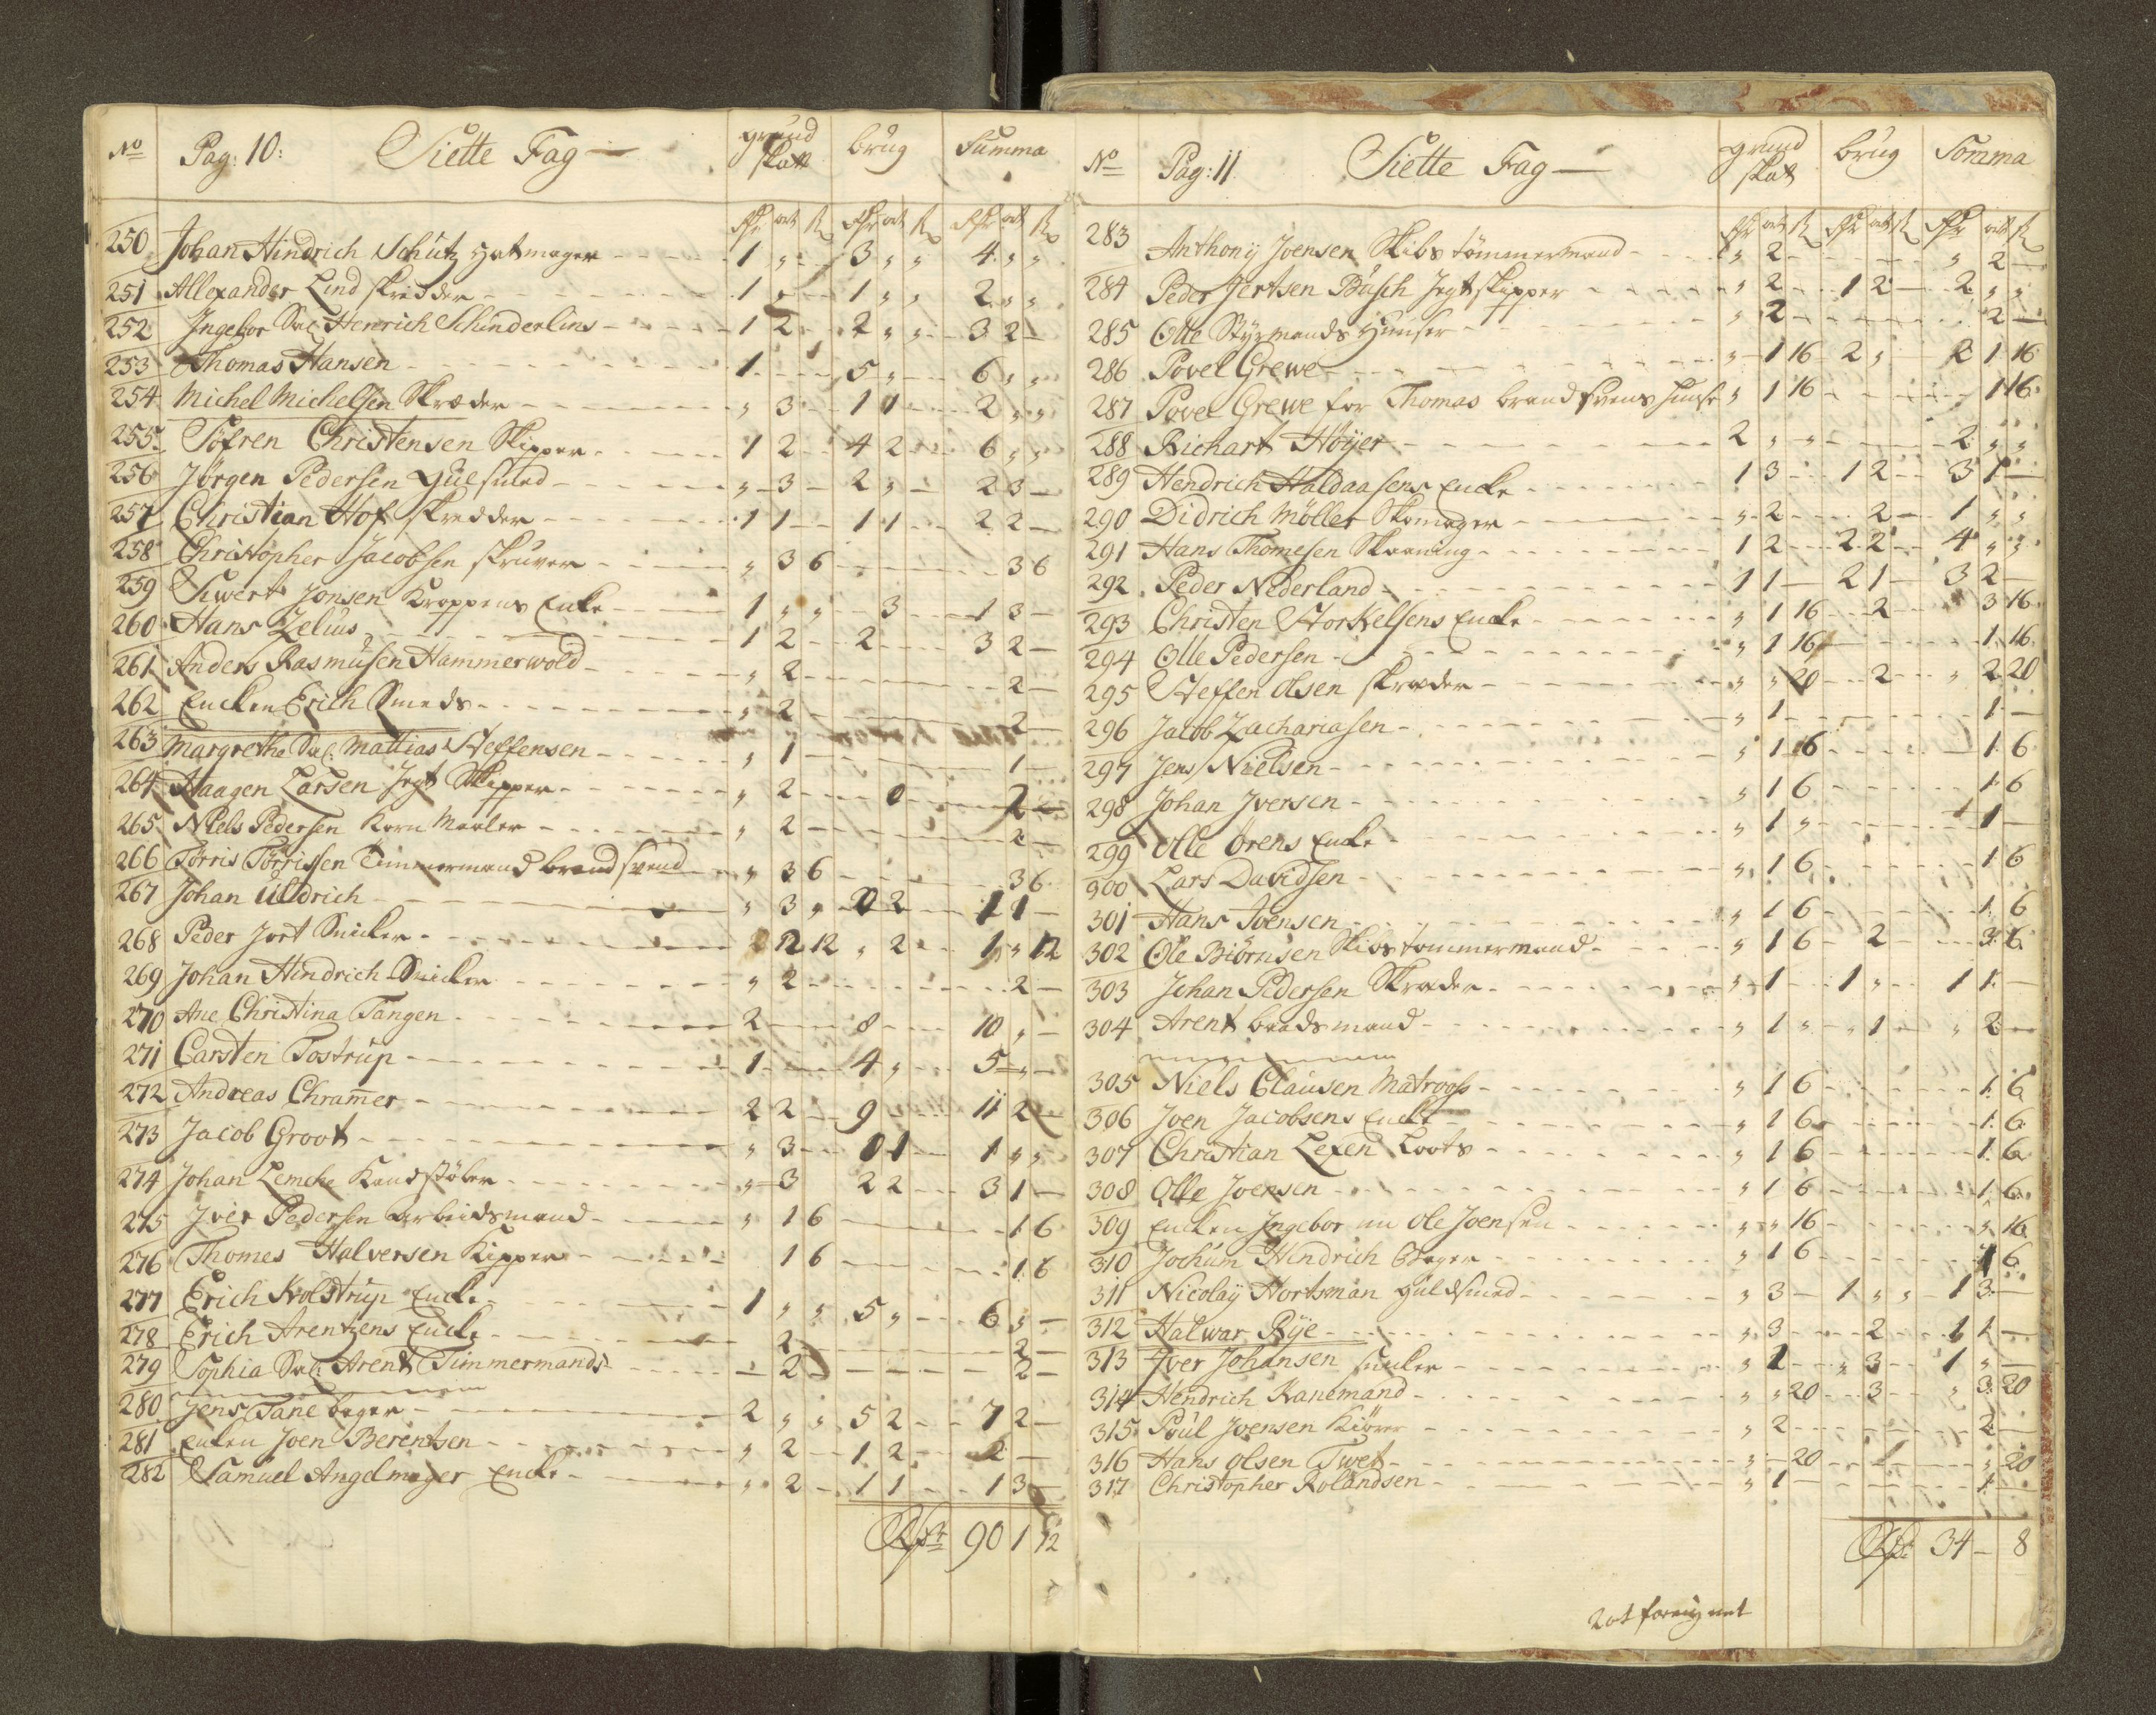 No Pag: 10: Siette Fag — grund skatt brug Summa
Rdr ort s Rdr ort s Rdr ort s
250 Johan Hindrich Schütz Hatmager 1 „ - 3 „ „ 4 „ „
251 Allexander Lind skredder 1 „ - 1 „ „ 2 „ „
252 Ingebor Sal: Henrich Schinderlins 1 2 - 2 „ „ 3 2 -
253 Thomas Hansen 1 - - 5 „ - 6 „ „
254 Michel Michelsen Skræder „ 3 - 1 1 - 2 „ „
255 Söfren Christensen Skipper 1 2 - 4 2 - 6 „ „
256 Jörgen Pedersen Gulsmed „ 3 - 2 „ - 2 3 -
257 Christian Hof skredder 1 1 - 1 1 - 2 2 -
258 Christopher Jacobsen skriver „ 3 6 - - - 3 6
259 Siwert Jonsen Kroppens Enke 1 „ „ 3 - 1 3 -
260 Hans Zelius 1 2 - 2 - - 3 2 -
261 Anders Rasmusen Hammerwold „ 2 - - - 2 -
262 Encken Erich Smeds „ 2 - - - 2 -
263 Margrethe Sal: Mattias Steffensen „ 1 - - - 1 -
264 Haagen Larsen Jegt Skipper „ 2 - 0 - 2 -
265 Niels Pedersen Korn Maaler „ 2 - - - 2 -
266 Törris Törrissen Timmermand brand svend „ 3 6 - - 3 6
267 Johan Uldrich „ 3 „ 0 2 - 1 1 -
268 Peder Jort Snicker 2 12 „ 2 - 1 „ 12
269 Johan Hindrich Snicker „ 2 - - - 2 -
270 Ane Christina Tangen 2 - - 8 - - 10 „ -
271 Carsten Tostrup 1 - - 4 „ - 5 „ -
272 Andreas Chramer 2 2 - 9 - - 11 2 -
273 Jacob Groot „ 3 - 0 1 - 1 „ „
274 Johan Lemche Kandstöber „ 3 2 2 - 3 1 -
275 Iver Pedersen Arbeidsmand „ 1 6 - - - 1 6
276 Thomes Halversen Kipper 1 6 - - - 1 6
277 Erich Kolstrup Encke 1 „ „ 5 „ - 6 „ -
278 Erich Arentzens Encke 2 - - - 2 -
279 Sophia Sal: Arent Timmermands - 2 - - - 2 -
280 Jens Tane bager 2 „ „ 5 2 - 7 2 -
281 Enken Joen Berentsen „ 2 - 1 2 - 2 -
282 Samuel Angelmager Encke „ 2 - 1 1 - 1 3 -
Rdr 90 1 12
No Pag: 11 Siette Fag — grund skat brug Somma
Rdr ort s Rdr ort s Rdr ort s
283 Anthony Joensen Skibs tömmermand „ 2 - - - „ 2 -
284 Peder Jertsen Busch Jegtskipper „ 2 - 1 2 - 2 „ „
285 Olle Styrmands Huuser „ 2 - - - 2 -
286 Povel Grewe „ 1 16 2 „ - 2 1 16
287 Povel Grewe for Thomas brandsvens Huuse „ 1 16 - - - 1 16
288 Richart Höyer 2 „ „ - - 2 „ „
289 Hendrich Haldaasens Encke 1 3 - 1 2 - 3 1 -
290 Didrich Möller Skomager „ 2 - 2 - 1 „ „
291 Hans Thomesen Skeening 1 2 - 2 2 - 4 „ „
292 Peder Nederland 1 1 - 2 1 - 3 2 -
293 Christen Storkelsens Encke „ 1 16 2 - 3 16
294 Olle Pedersen „ 1 16 - - 1 16
295 Steffen Olsen skræder „ „ 20 2 - „ 2 20
296 Jacob Zachariasen „ 1 - - - 1 -
297 Jens Nielsen „ 1 6 - - 1 6
298 Johan Iversen „ 1 6 - - 1 6
299 Olle Orens Encke „ 1 „ - - 1 -
300 Lars Davidsen „ 1 6 - - 1 6
301 Hans Joensen „ 1 6 - - 1 6
302 Ole Biörnsen Skibs tommermand „ 1 6 2 - 3 6
303 Johan Pedersen Skræder „ 1 - 1 „ - 1 1 -
304 Arent baadsmand „ 1 „ „ 1 - „ 2 -
305 Niels Clausen Matrooss „ 1 6 - - 1 6
306 Joen Jacobsens Encke „ 1 6 - - 1 6
307 Christian Lexen Loots „ 1 6 - - 1 6
308 Olle Joensen „ 1 6 - - 1 6
309 Encken Ingebor nu Ole Joensen „ „ 16 - - „ 16
310 Jochum Hindrich Bager „ 1 6 - - 1 6
311 Nicolay Hortsman Guldsmed „ 3 - 1 „ „ 1 3 -
312 Halwar Rÿe „ 3 - 2 - 1 1 -
313 Iver Johansen snicker „ 1 - „ 3 - 1 „ -
314 Hendrich Kanemand „ „ 20 3 - „ 3 20
315 Poul Joensen Kiörer „ 2 - - - 2 -
316 Hans Olsen Twet „ - 20 - - „ 20
317 Christopher Rolandsen „ 1 - - - 1 -
Rdr 34 - 8